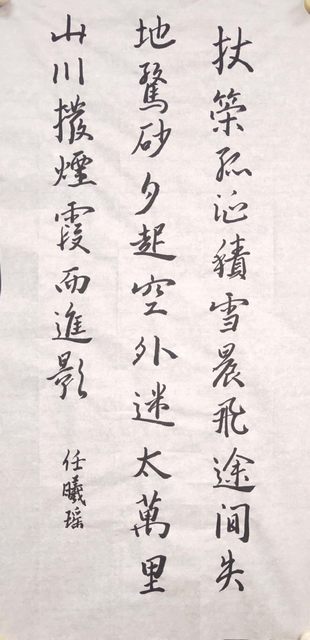 杖策孤征積雪晨飛途間失
地驚砂夕起空外迷太萬里
山川撥煙霞而進影
任曦瑶